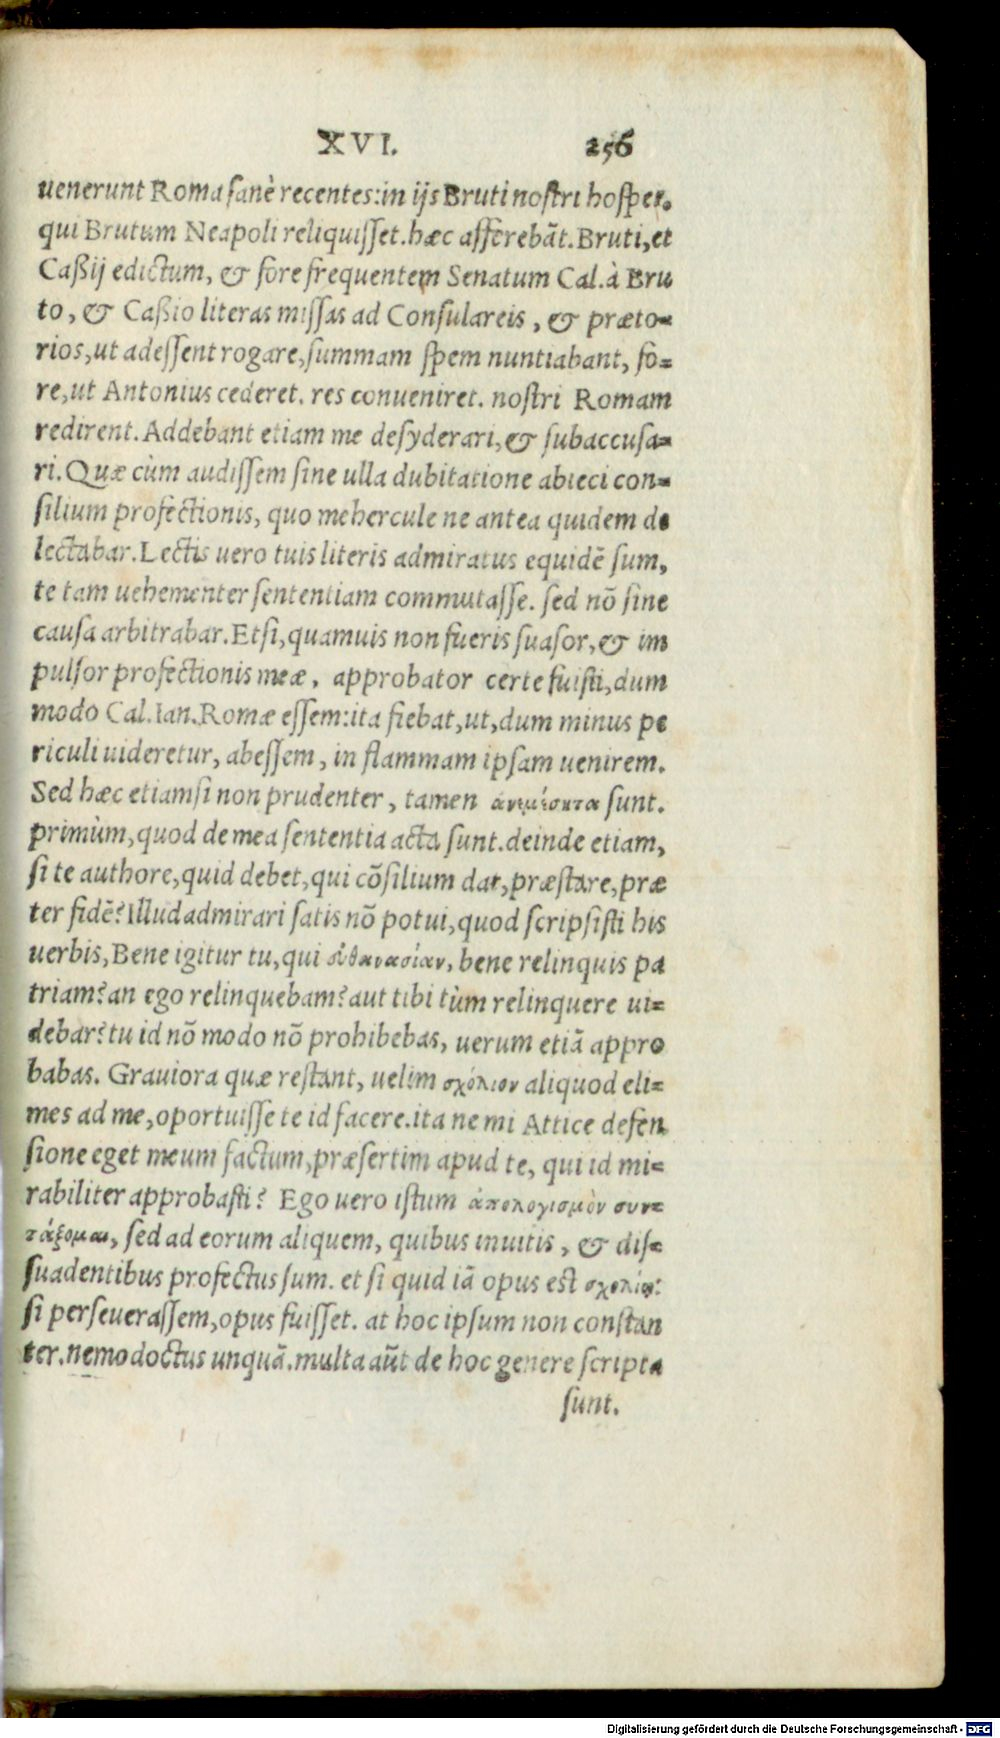 XVI. 256
uenerunt Roma sanè recentes: in ijs Bruti nostri hospes.
qui Brutum Neapoli reliquisset. hæc afferebãt. Bruti, et
Caßij edictum, & fore frequentem Senatum Cal. à Bru
to, & Caßio literas missas ad Consulareis, & præto=
rios, ut adessent rogare, summam spem nuntiabant, fo=
re, ut Antonius cederet. res conueniret. nostri Romam
redirent. Addebant etiam me desyderari, & subaccusa=
ri. Quæ cùm audissem sine ulla dubitatione abieci con=
silium profectionis, quo mehercule ne antea quidem de
lectabar. Lectis uero tuis literis admiratus equidẽ sum,
te tam uehementer sententiam commutasse. sed nõ sine
causa arbitrabar. Etsi, quamuis non fueris suasor, & im
pulsor profectionis meæ, approbator certe fuisti, dum
modo Cal. Ian. Romæ essem: ita fiebat, ut, dum minus pe
riculi uideretur, abessem, in flammam ipsam uenirem.
Sed hæc etiamsi non prudenter, tamen ἀνεμέσητα sunt.
primùm, quod de mea sententia acta sunt. deinde etiam,
si te authore, quid debet, qui cõsilium dat, præstare, præ
ter fidẽ? Illud admirari satis nõ potui, quod scripsisti his
uerbis, Bene igitur tu, qui εὐθανασίαν, bene relinquis pa
triam? an ego relinquebam? aut tibi tùm relinquere ui=
debar? tu id nõ modo nõ prohibebas, uerum etiã appro
babas. Grauiora quæ restant, uelim σχόλιον aliquod eli=
mes ad me, oportuisse te id facere. ita ne mi Attice defen
sione eget meum factum, præsertim apud te, qui id mi=
rabiliter approbasti? Ego uero istum ἀπολογισμὸν συν=
τάξομαι, sed ad eorum aliquem, quibus inuitis, & dis=
suadentibus profectus sum. et si quid iã opus est σχολίῳ:
si perseuerassem, opus fuisset. at hoc ipsum non constan
ter. nemo doctus unquã. multa aũt de hoc genere scripta
sunt.
Digitalisierung gefördert durch die Deutsche Forschungsgemeinschaft - DFG